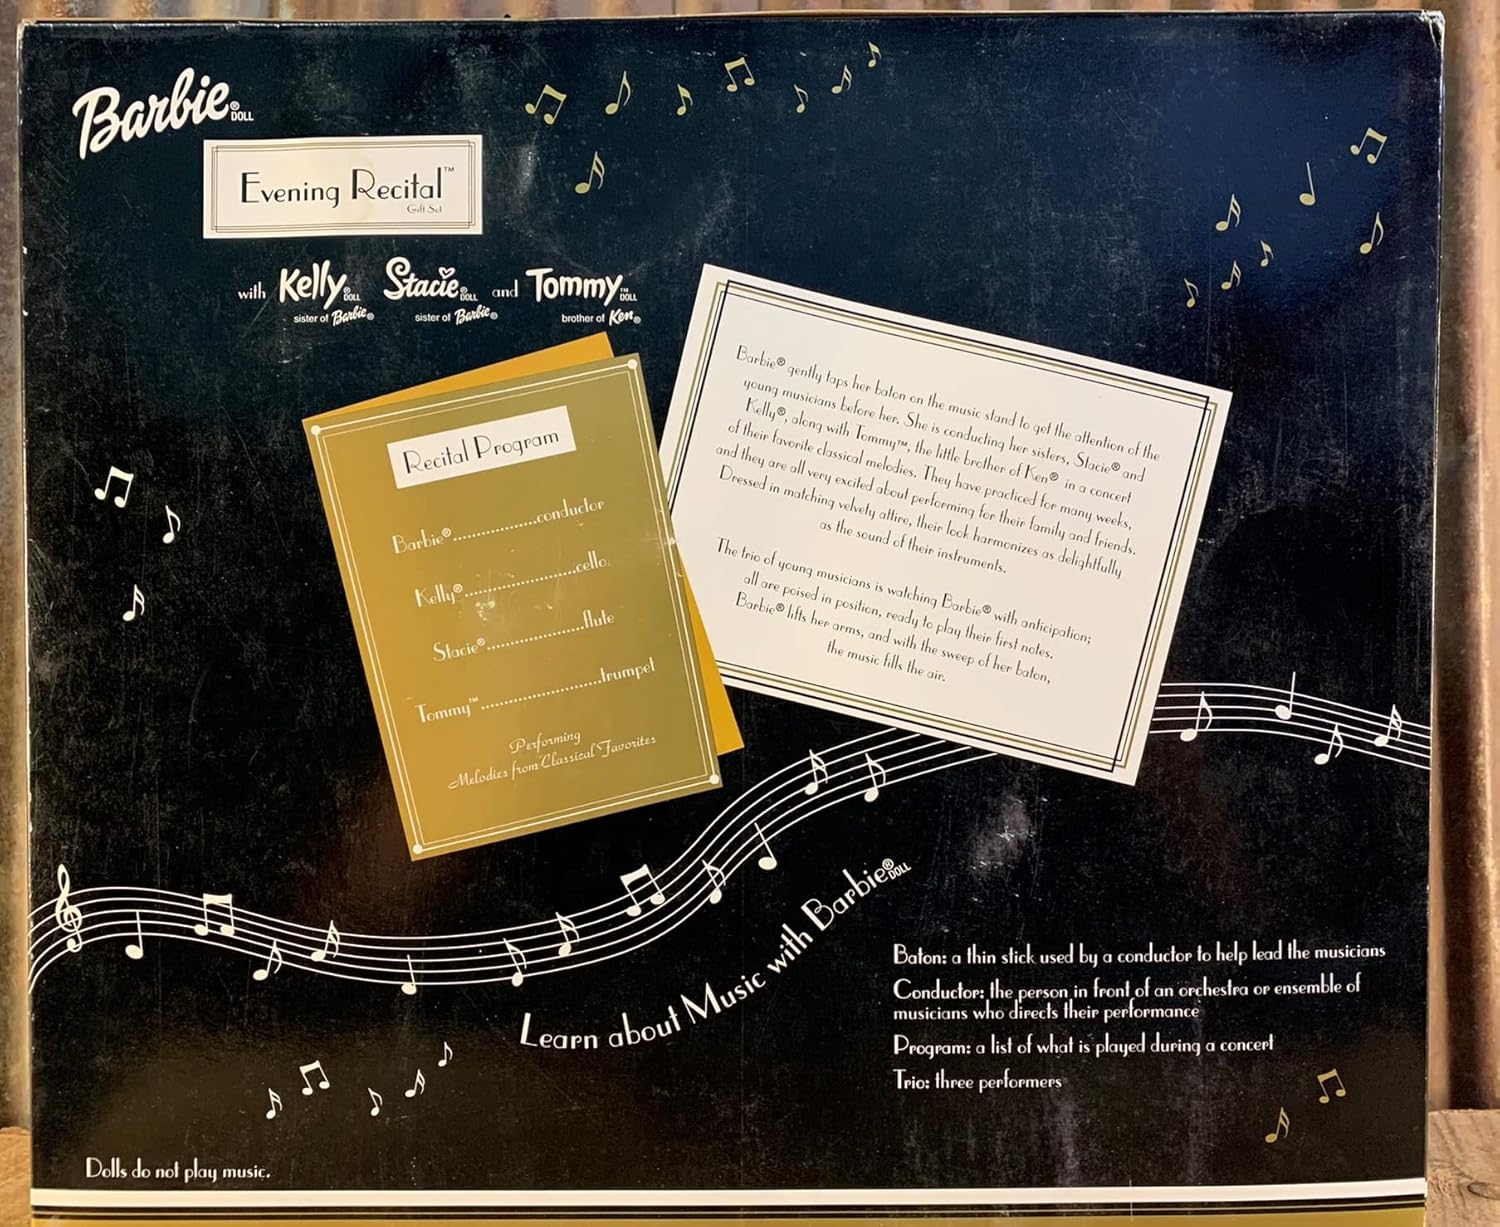 Barbie® DOLL
Evening Recital™
Gift Set
with Kelly® DOLL Stacie® DOLL and Tommy™ DOLL
sister of Barbie® sister of Barbie® brother of Ken®
Recital Program
Barbie®.................conductor
Kelly®.......................cello
Stacie®....................flute
Tommy™.........................trumpet
Performing
Melodies from Classical Favorites
Barbie® gently taps her baton on the music stand to get the attention of the
young musicians before her. She is conducting her sisters, Stacie® and
Kelly®, along with Tommy™, the little brother of Ken® in a concert
of their favorite classical melodies. They have practiced for many weeks,
and they are all very excited about performing for their family and friends.
Dressed in matching velvety attire, their look harmonizes as delightfully
as the sound of their instruments.
The trio of young musicians is watching Barbie® with anticipation;
all are poised in position, ready to play their first notes.
Barbie® lifts her arms, and with the sweep of her baton,
the music fills the air.
Learn about Music with Barbie® DOLL
Baton: a thin stick used by a conductor to help lead the musicians
Conductor: the person in front of an orchestra or ensemble of
musicians who directs their performance
Program: a list of what is played during a concert
Trio: three performers
Dolls do not play music.